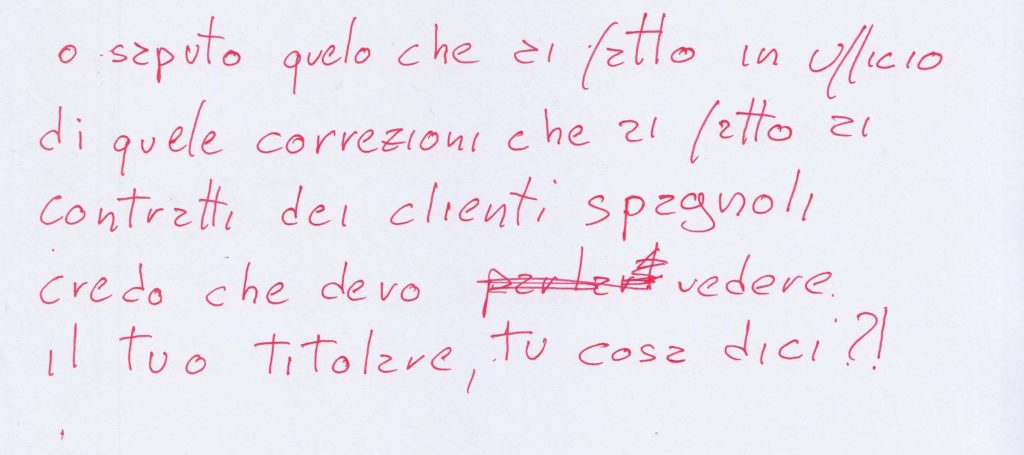 o saputo quelo che ai fatto in ufficio
di quele correzioni che ai fatto ai
contratti dei clienti spagnoli
credo che devo vedere.
il tuo titolare, tu cosa dici?!